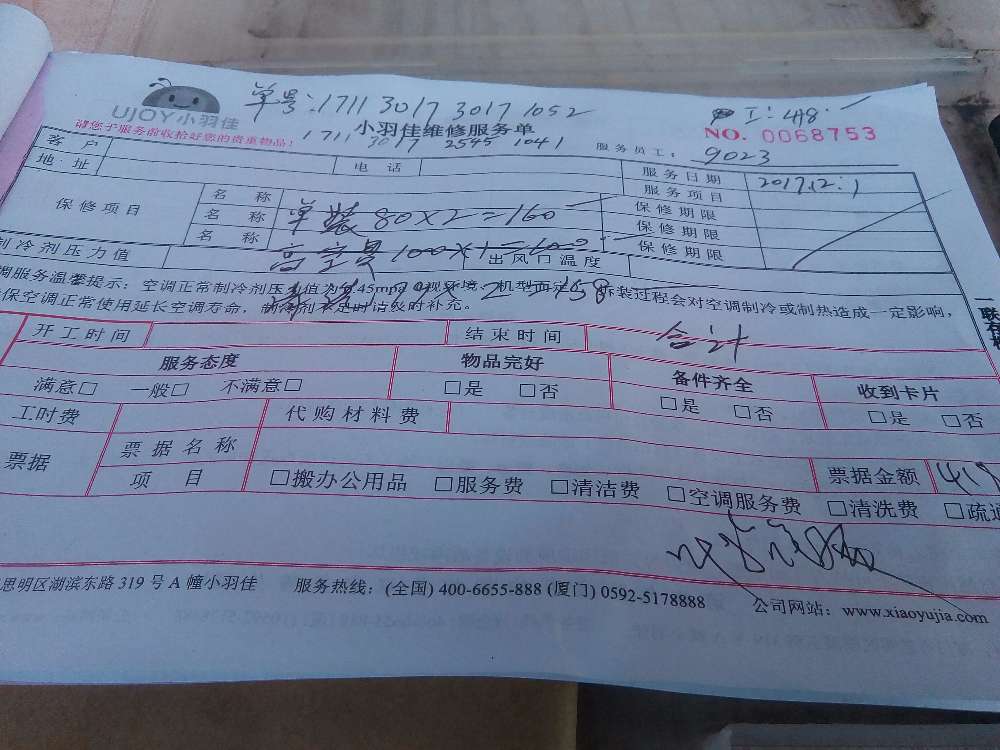 单号:1711 3017 3017 1052
工:418.一
UJOY小羽佳
小羽佳维修服务单
NO. 0068753
请您于服务前收拾好您的贵重物品!
1711 3017 2545 1041
服务员工: 9023
客 户
地 址
电 话
服务日期 2017.12.1
服务项目
保修项目
名 称
名 称 单装80X2=160
名 称
保修期限
保修期限
保修期限
制冷剂压力值
高空费100X1=100
出风口温度
调服务温馨提示:空调正常制冷剂压力值为0.45mpa(视环境、机型而定),拆装过程会对空调制冷或制热造成一定影响,
保空调正常使用延长空调寿命,制冷剂不足时请及时补充。
X2=158
开工时间
结束时间
合计
服务态度
物品完好
备件齐全
收到卡片
满意□ 一般□ 不满意□
□是 □否
□是 □否
□是 □否
工时费
代购材料费
票据
票据名称
票据金额
项 目
□搬办公用品 □服务费 □清洁费 □空调服务费 □清洗费 □疏通
思明区湖滨东路 319 号 A 幢小羽佳 服务热线:(全国) 400-6655-888 (厦门) 0592-5178888 公司网站:www.xiaoyujia.com